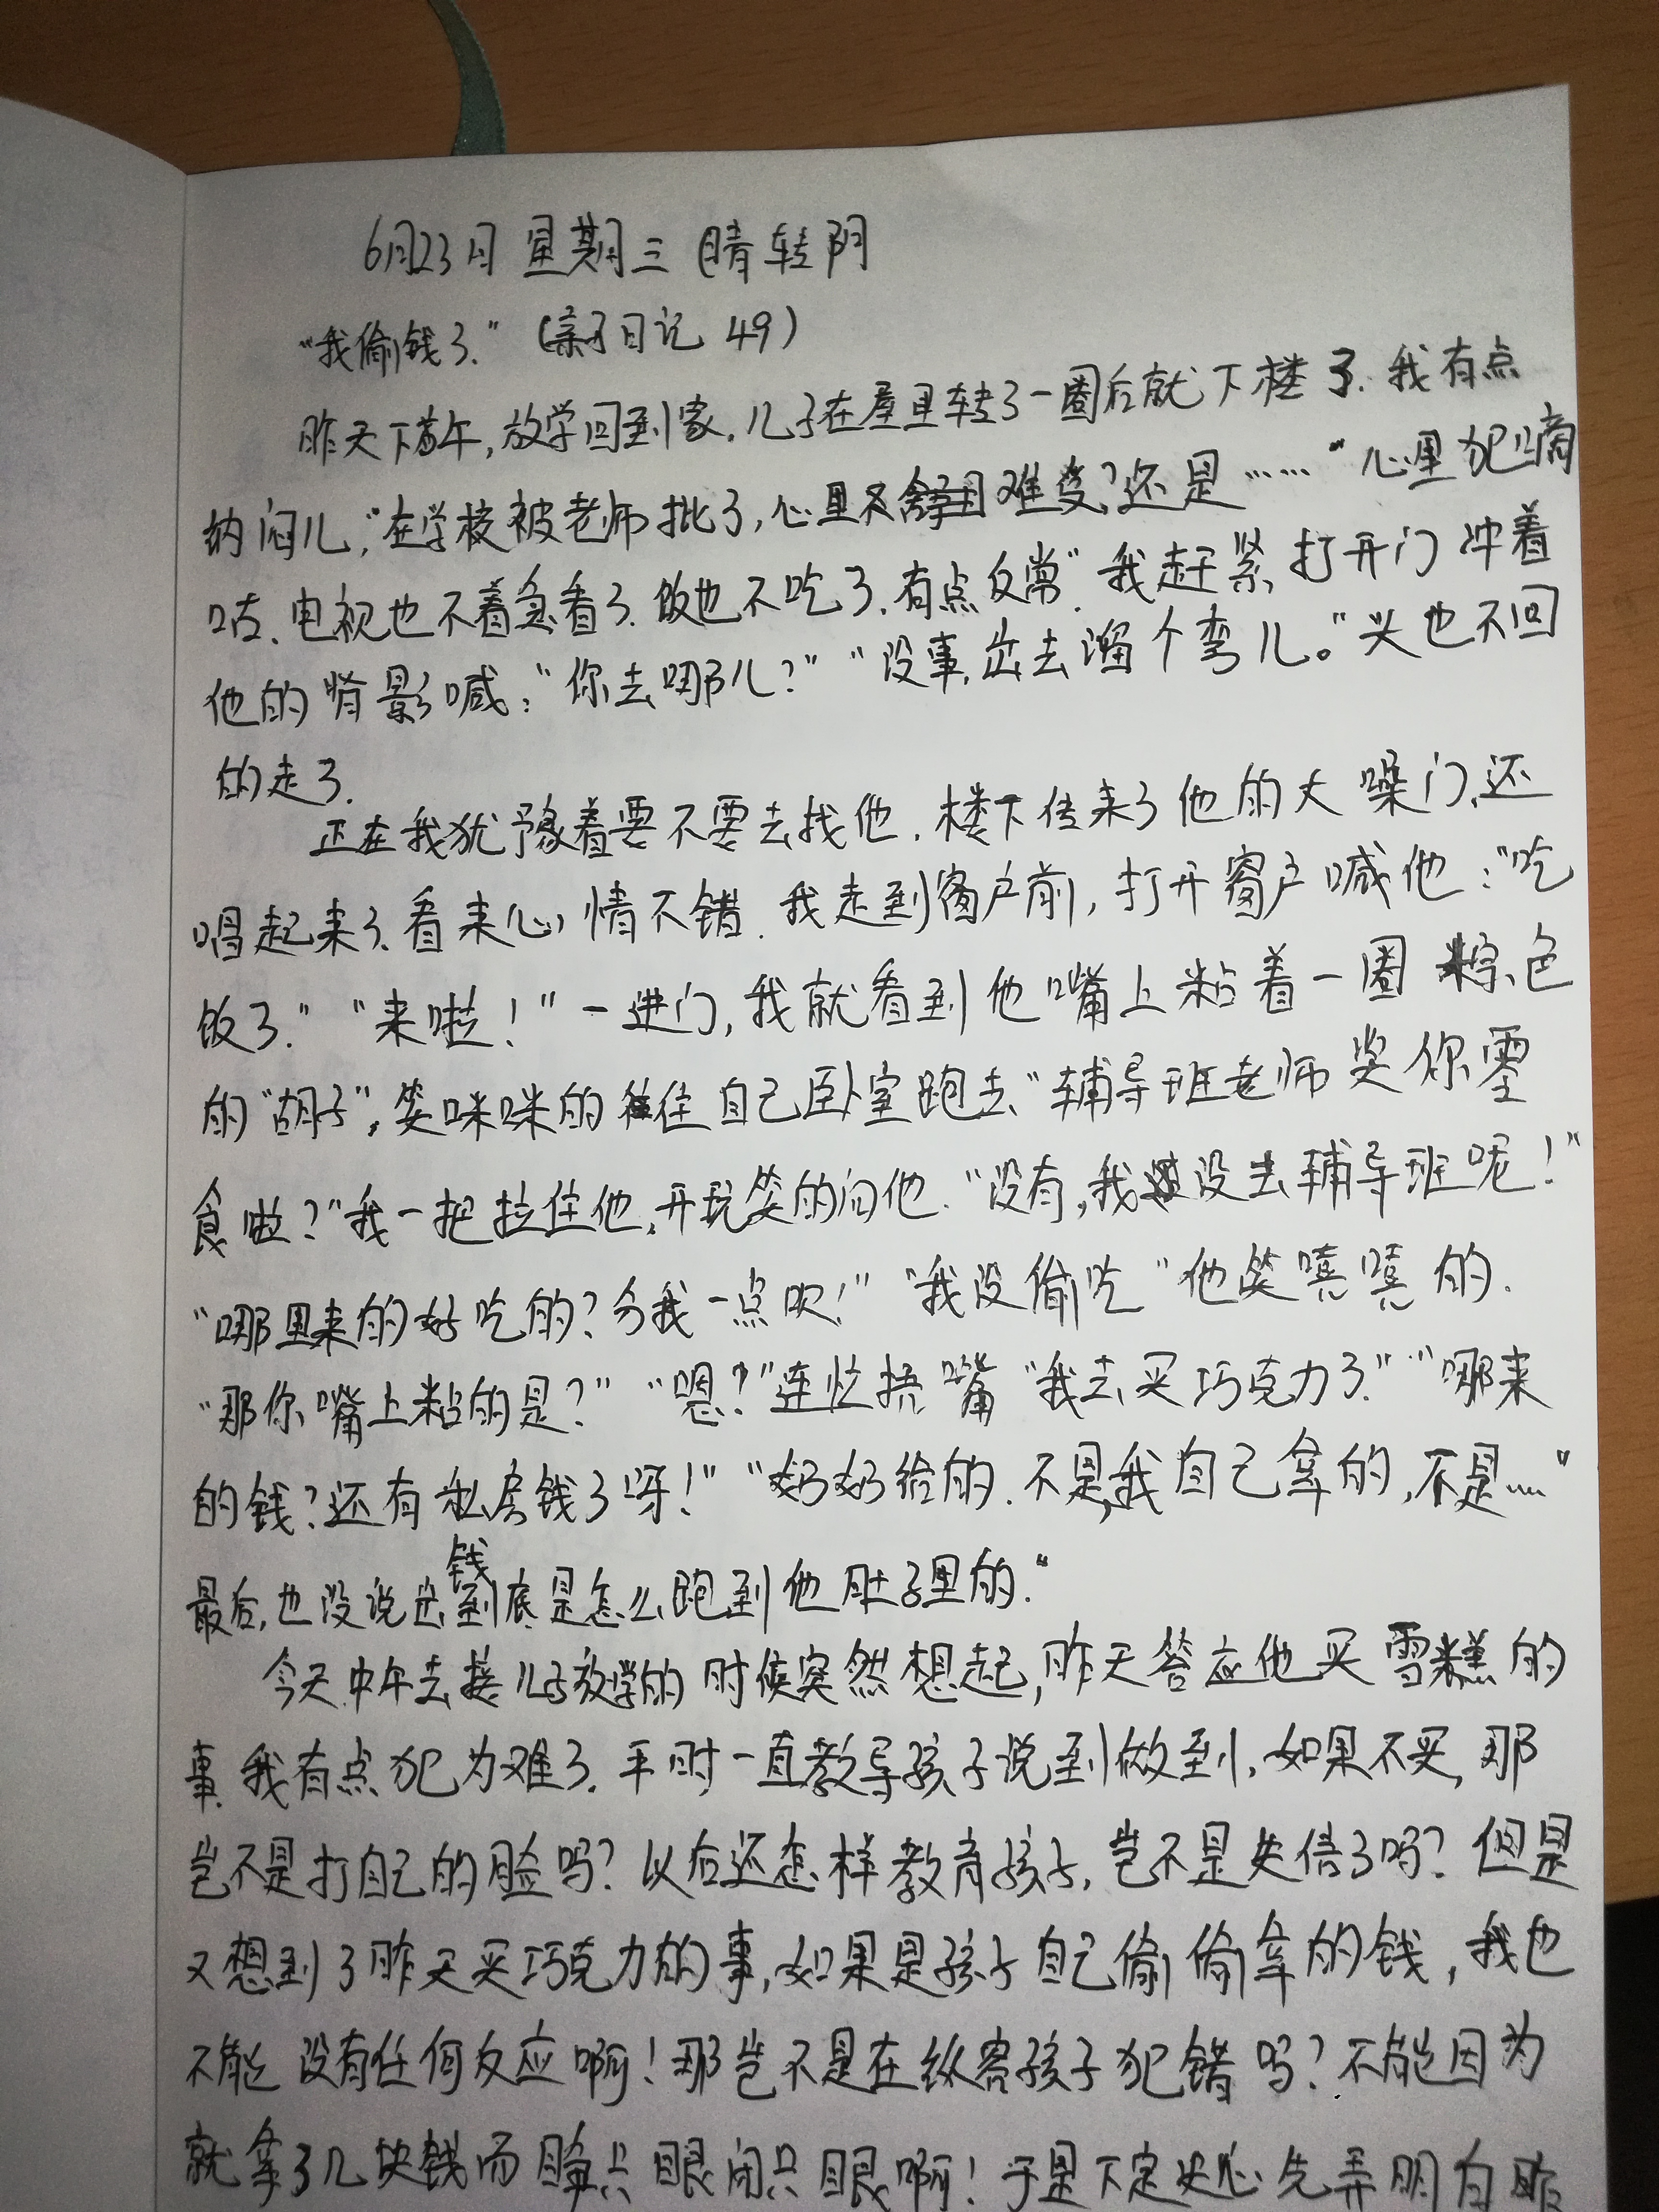 6月23日 星期三 晴转阴
“我偷钱了.”(亲子日记 49)
昨天下午,放学回到家,儿子在屋里转了一圈后就下楼了.我有点
纳闷儿,“在学校被老师批了,心里难受?还是……“心里犯嘀
咕.电视也不着急看了.饭也不吃了.有点反常”.我赶紧打开门冲着
他的背影喊:“你去哪儿?”“没事,出去溜个弯儿。”头也不回
的走了.
正在我犹豫着要不要去找他,楼下传来了他的大嗓门,还
唱起来了.看来心情不错.我走到窗户前,打开窗户喊他:“吃
饭了.”“来啦!”一进门,我就看到他嘴上粘着一圈棕色
的“胡子”,笑咪咪的往自己卧室跑去“辅导班老师奖你零
食啦?”我一把拉住他,开玩笑的问他.“没有,我没去辅导班呢!”
“哪里来的好吃的?分我一点呗!”“我没偷吃”他笑嘻嘻的.
“那你嘴上粘的是?”“嗯?”连忙捂嘴“我去买巧克力了.”“哪来
的钱?还有私房钱了呀!”“奶奶给的.不是,我自己拿的,不是……”
最后,也没说出钱到底是怎么跑到他肚子里的.“
今天中午去接儿子放学的时候突然想起,昨天答应他买雪糕的
事.我有点犯为难了.平时一直教导孩子说到做到,如果不买,那
岂不是打自己的脸吗?以后还怎样教育孩子,岂不是失信了吗?但是
又想到了昨天买巧克力的事,如果是孩子自己偷偷拿的钱,我也
不能没有任何反应啊!那岂不是在纵容孩子犯错吗?不能因为
就拿了几块钱而睁只眼闭只眼啊!于是下定决心先弄明白昨